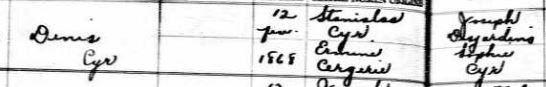 12 Stanislas Joseph
Denis Jan. Cyr Desjardins
Cyr 1868 Ermine Sophie
Cergerie Cyr